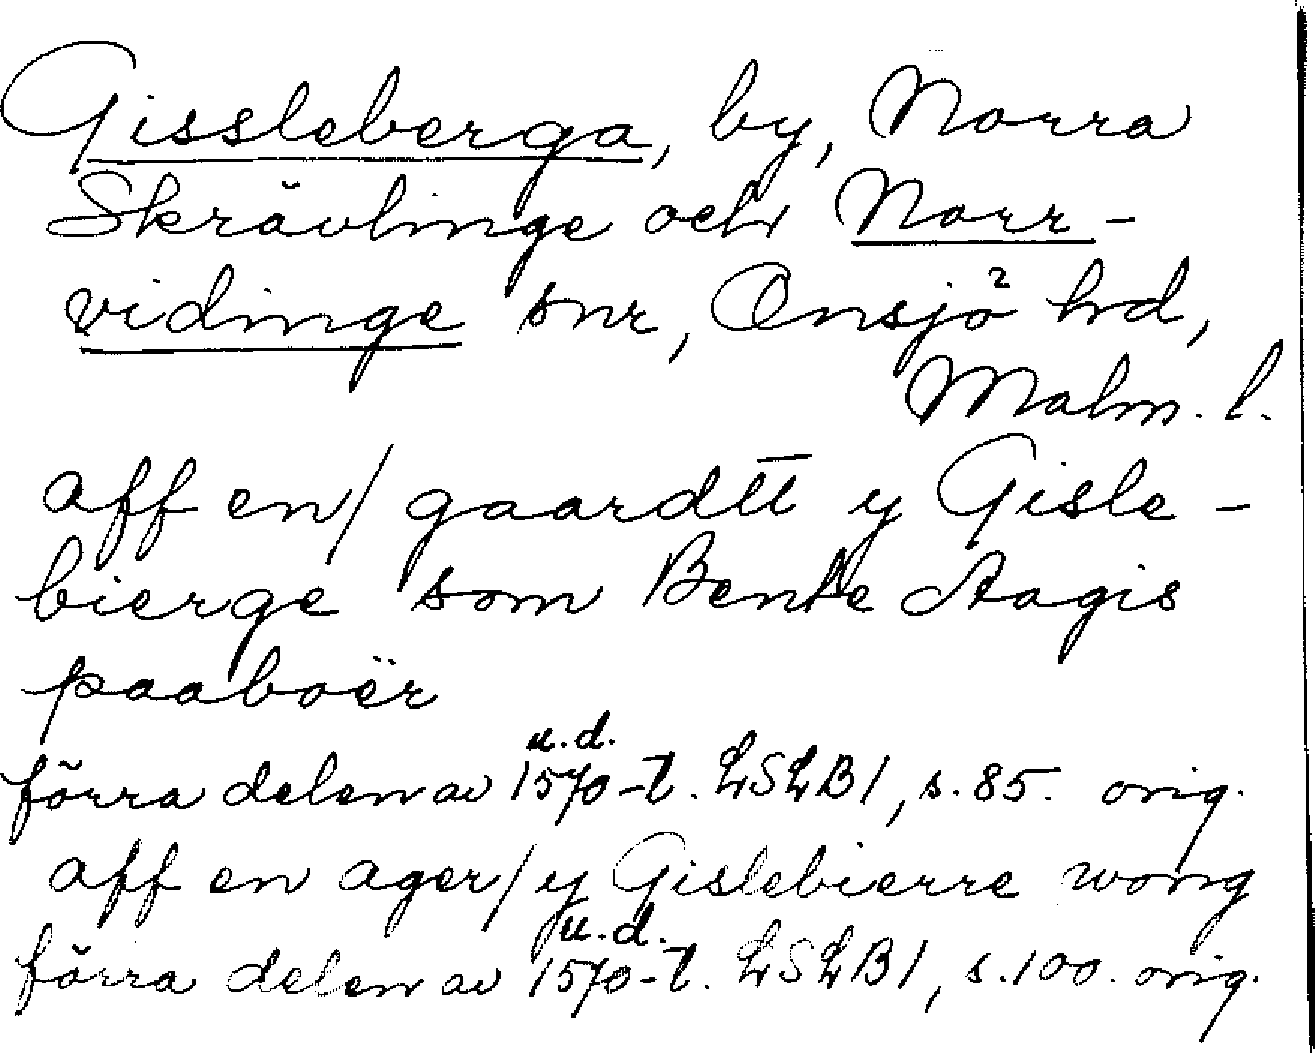 Gissleberga, by, Norra
Skrävlinge och Norr-
vidinge snr, Onsjö hd,
Malm. l.
aff en/ gaardtt y Gisle-
bierge som Bente Aagis
paaboër
u.d.
förra delen av 1570-t. LSLB1, s. 85. orig.
aff en ager/ y Gislebierre wong
u.d.
förra delen av 1570-t. LSLB1, s. 100. orig.